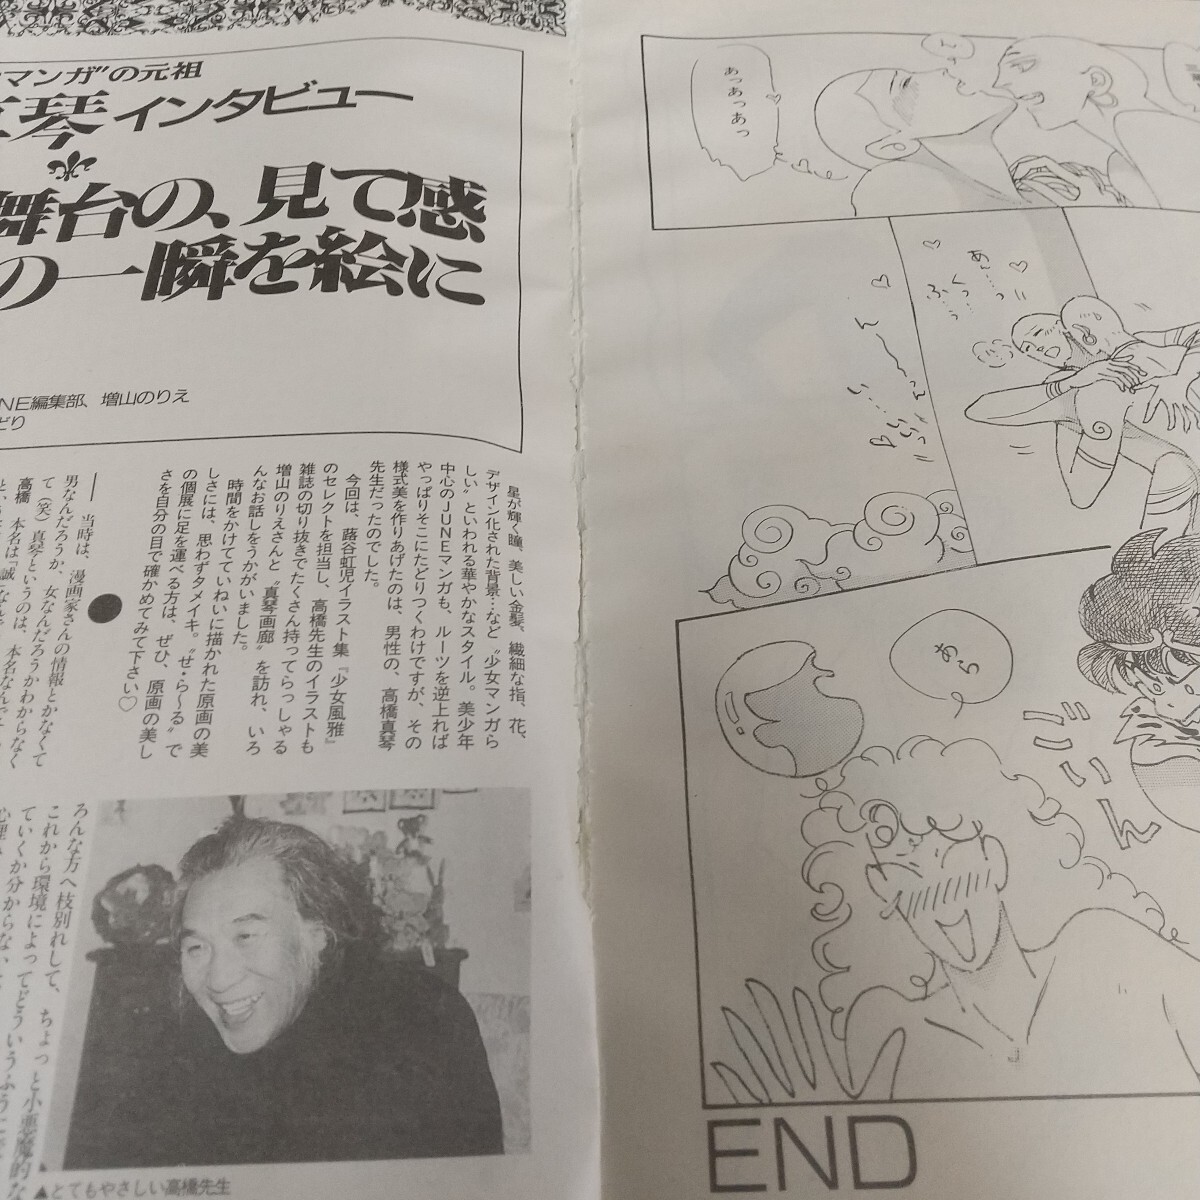 マンガ”の元祖
琴インタビュー
舞台の、見て感
の一瞬を絵に
NE編集部、増山のりえ
どり
星が輝く瞳、美しい金髪、繊細な指、花、
デザイン化された背景…など〝少女マンガら
しい〟といわれる華やかなスタイル。美少年
中心のJUNEマンガも、ルーツを逆上れば
やっぱりそこにたどりつくわけですが、その
様式美を作りあげたのは、男性の、高橋真琴
先生だったのでした。
今回は、蕗谷虹児イラスト集『少女風雅』
のセレクトを担当し、高橋先生のイラストも
雑誌の切り抜きでたくさん持ってらっしゃる
増山のりえさんと〝真琴画廊〟を訪れ、いろ
んなお話しをうかがいました。
時間をかけてていねいに描かれた原画の美
しさには、思わずタメイキ。〝せ・ら〜る〟で
の個展に足を運べる方は、ぜひ、原画の美し
さを自分の目で確かめてみて下さい♡
●
── 当時は、漫画家さんの情報とかなくて
男なんだろうか、女なんだろうかわからなく
て（笑）真琴というのは、本名なんで
高橋 本名は「誠」なんで
ろんな方へ枝別れして、ちょっと小悪魔的な
これから環境によってどういうふうに
ていくか分からない
▲とてもやさしい高橋先生
あっあっあっ
あ…っ
くっ…
ふ…
ん
あら
ごいん
END